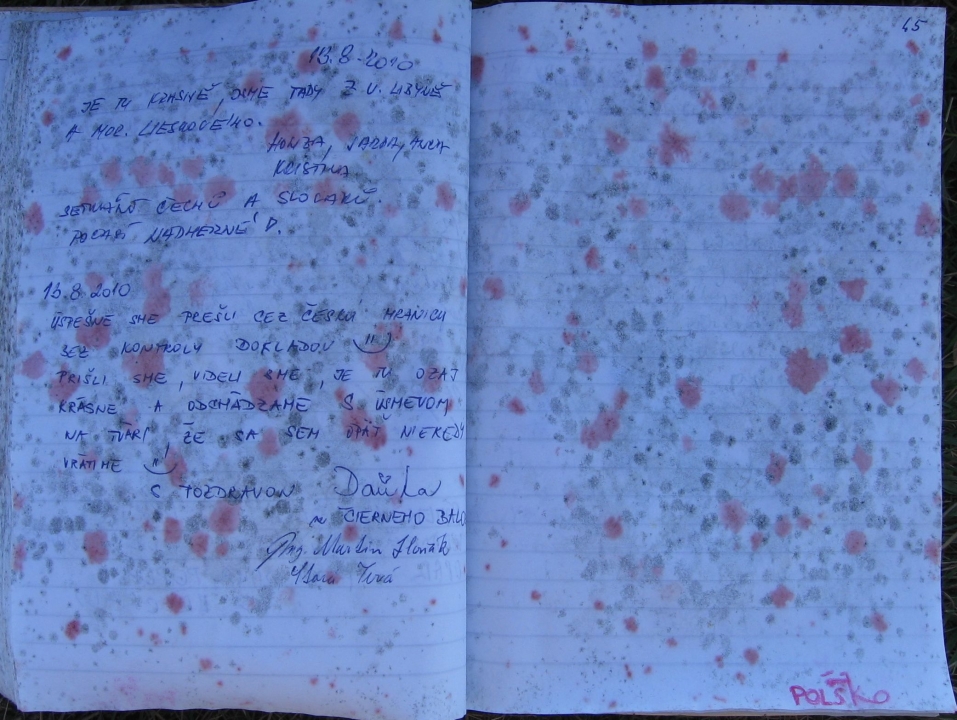 13.8.2010
JE TU KRÁSNĚ, JSME TADY Z V. LIBYNĚ
A MOC. LIESKOVÉHO.
HONZA, JARDA,
KRISTÝNA
SETKÁNÍ ČECHŮ A SLOVÁKŮ.
POČASÍ NÁDHERNÉ
13.8.2010
ÚSPEŠNE SME PREŠLI CEZ ČESKÚ HRANICU
BEZ KONTROLY DOKLADOV
PRIŠLI SME, VIDELI SME, JE TU OZAJ
KRÁSNE A ODCHÁDZAME S ÚSMEVOM
NA TVÁRI, ŽE SA SEM OPÄŤ NIEKEDY
VRÁTIME
S POZDRAVOM Daňka
ČIERNEHO BALO
Ing. Martin
45
POLSKO